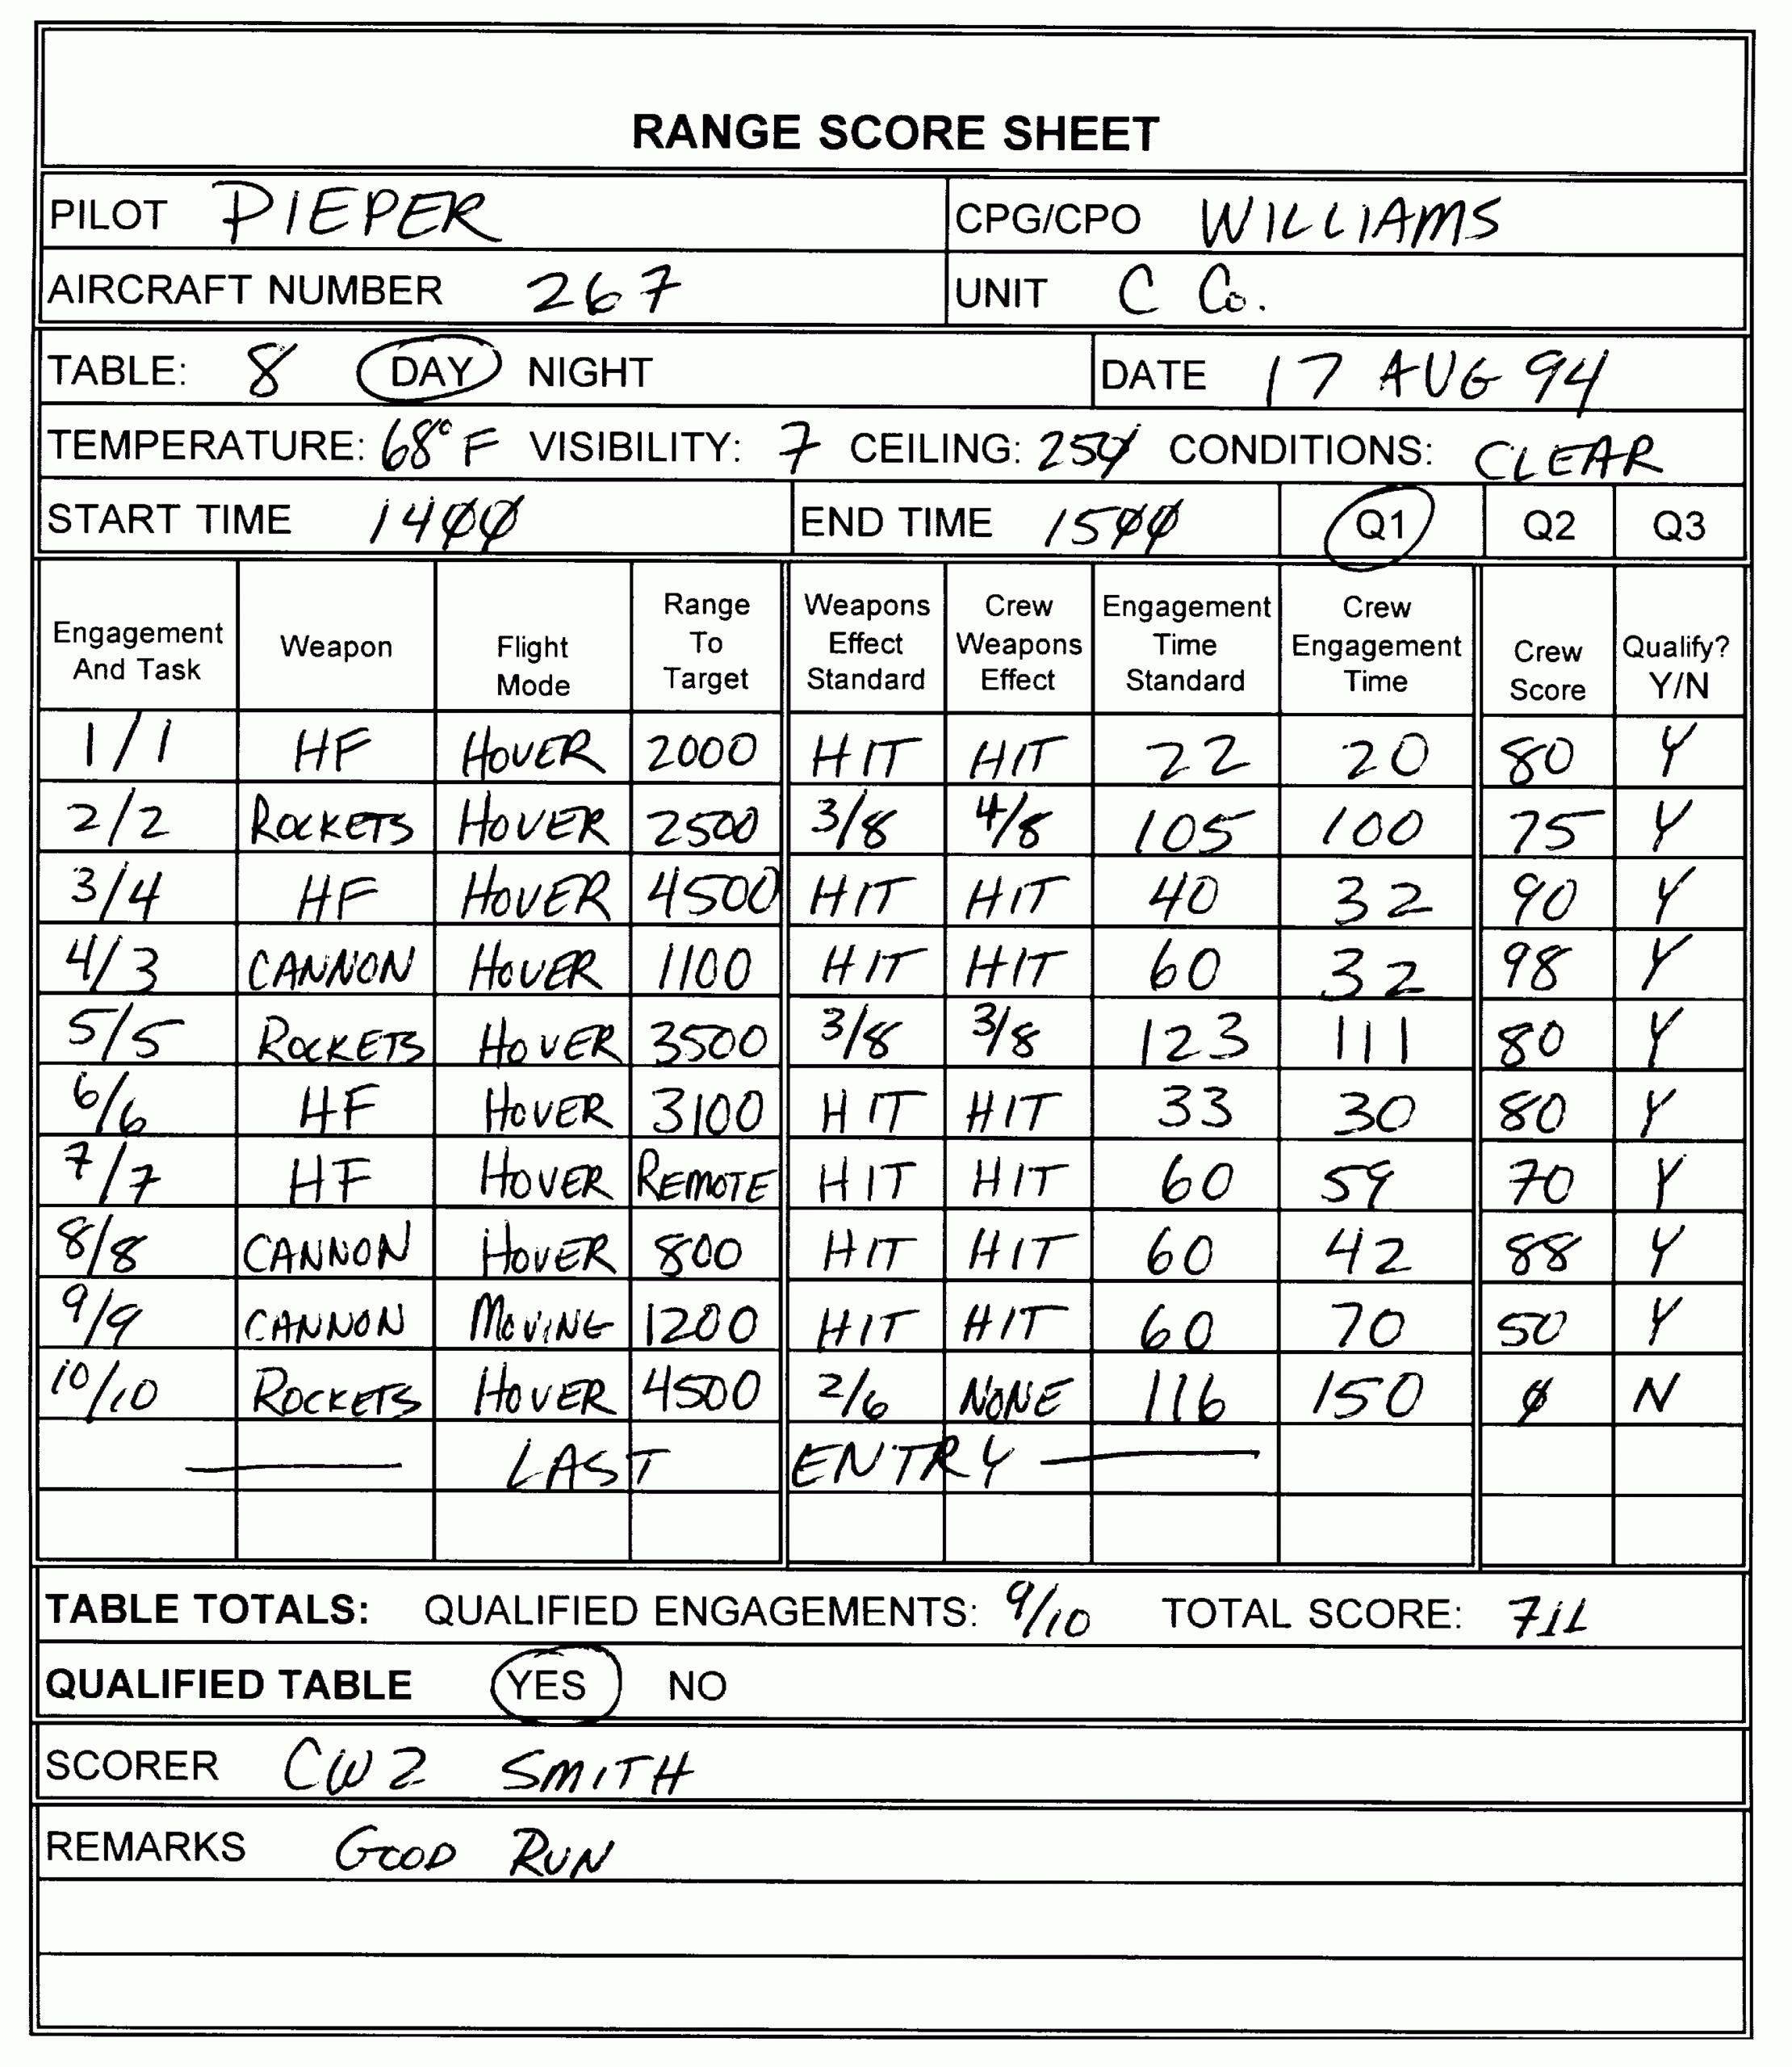 RANGE SCORE SHEET
PILOT PIEPER CPG/CPO WILLIAMS
AIRCRAFT NUMBER 267 UNIT C Co.
TABLE: 8 DAY NIGHT DATE 17 AUG 94
TEMPERATURE: 68° F VISIBILITY: 7 CEILING: 250 CONDITIONS: CLEAR
START TIME 1400 END TIME 1500 Q1 Q2 Q3
Engagement And Task Weapon Flight Mode Range To Target Weapons Effect Standard Crew Weapons Effect Engagement Time Standard Crew Engagement Time Crew Score Qualify? Y/N
1/1 HF HOVER 2000 HIT HIT 22 20 80 Y
2/2 ROCKETS HOVER 2500 3/8 4/8 105 100 75 Y
3/4 HF HOVER 4500 HIT HIT 40 32 90 Y
4/3 CANNON HOVER 1100 HIT HIT 60 32 98 Y
5/5 ROCKETS HOVER 3500 3/8 3/8 123 111 80 Y
6/6 HF HOVER 3100 HIT HIT 33 30 80 Y
7/7 HF HOVER REMOTE HIT HIT 60 59 70 Y
8/8 CANNON HOVER 800 HIT HIT 60 42 88 Y
9/9 CANNON MOVING 1200 HIT HIT 60 70 50 Y
10/10 ROCKETS HOVER 4500 2/6 NONE 116 150 0 N
LAST ENTRY
TABLE TOTALS: QUALIFIED ENGAGEMENTS: 9/10 TOTAL SCORE: 711
QUALIFIED TABLE YES NO
SCORER CW2 SMITH
REMARKS GOOD RUN